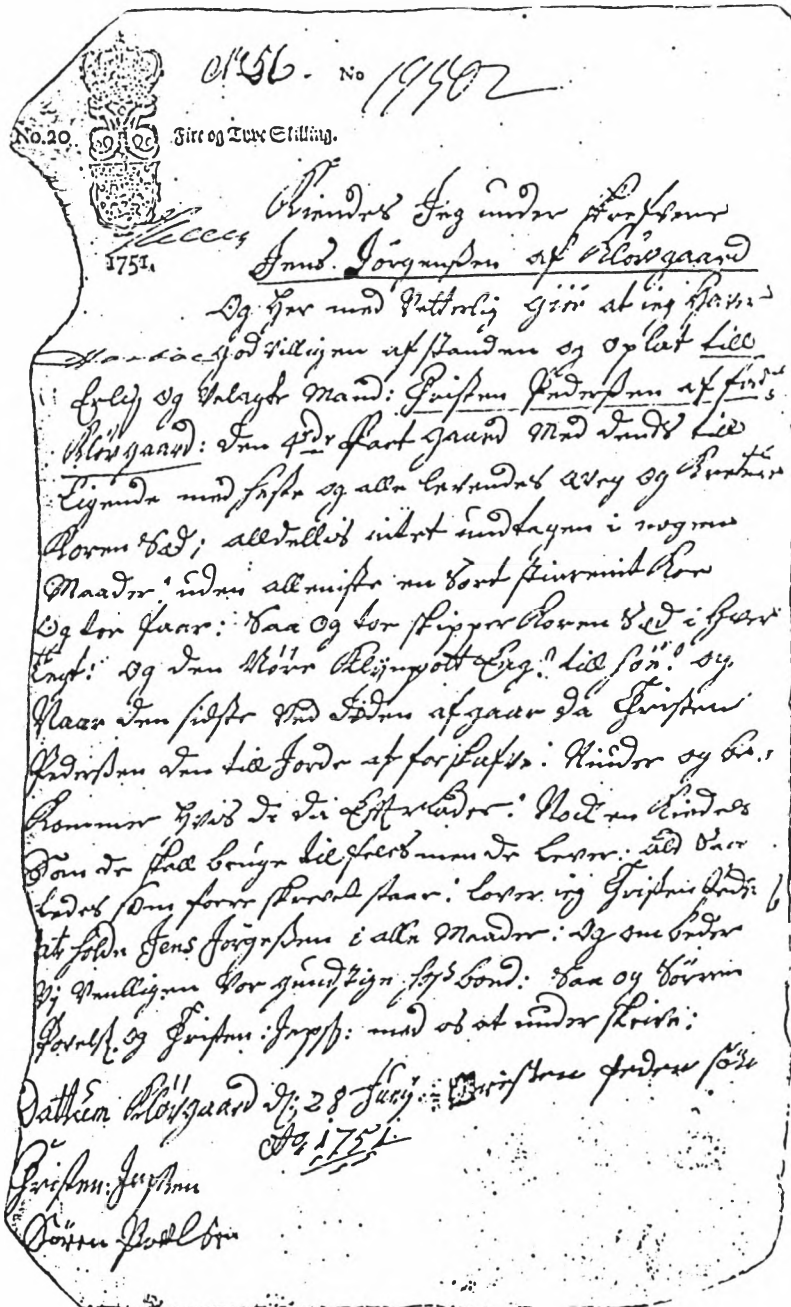 No 56. No 19502
No. 20 Fire og Tyve Skilling.
1751.
Kiendes Jeg under skrefvene
Jens Jörgensen af Kløvgaard
Og Her med Vetterlig giør at ieg Haver
godvilligen afstanden og oplat till
Erlig og Velagte Mand: Christen Pedersen af
Kløvgaard: den Part gaard Med dends till
ligende med heste og alle levendes qveg og
Koren Sæd; alldellis intet undtagen i nogen
Maader: uden alleniste en Sort Koe
Og toe Faar: Saa Og toe skipper Koren Sæd i Hver
og den Nøre Eng: till og
Naar den sidste Ved Døden afgaar da Christen
Pedersen den till Jorde at forskafve: Niuder og be-
kommer Hvis de da Efterlader: Noch en Kiedel
Som de skall bruge til felles men de lever: alt Saa-
ledes som forre skrevet staar: lover ieg Christen Peders:
at holde Jens Jörgesen i alle Maader: og om beder
Vj Venlligen Vor gunstige Hosbond: Saa og Sörren
Povels: og Christen: Jeps: med os at under skrive:
Dattum Kløvgaard d: 28 Christen Peder sön
Ao 1751.
Christen: Jepsen
Sören Povelsen